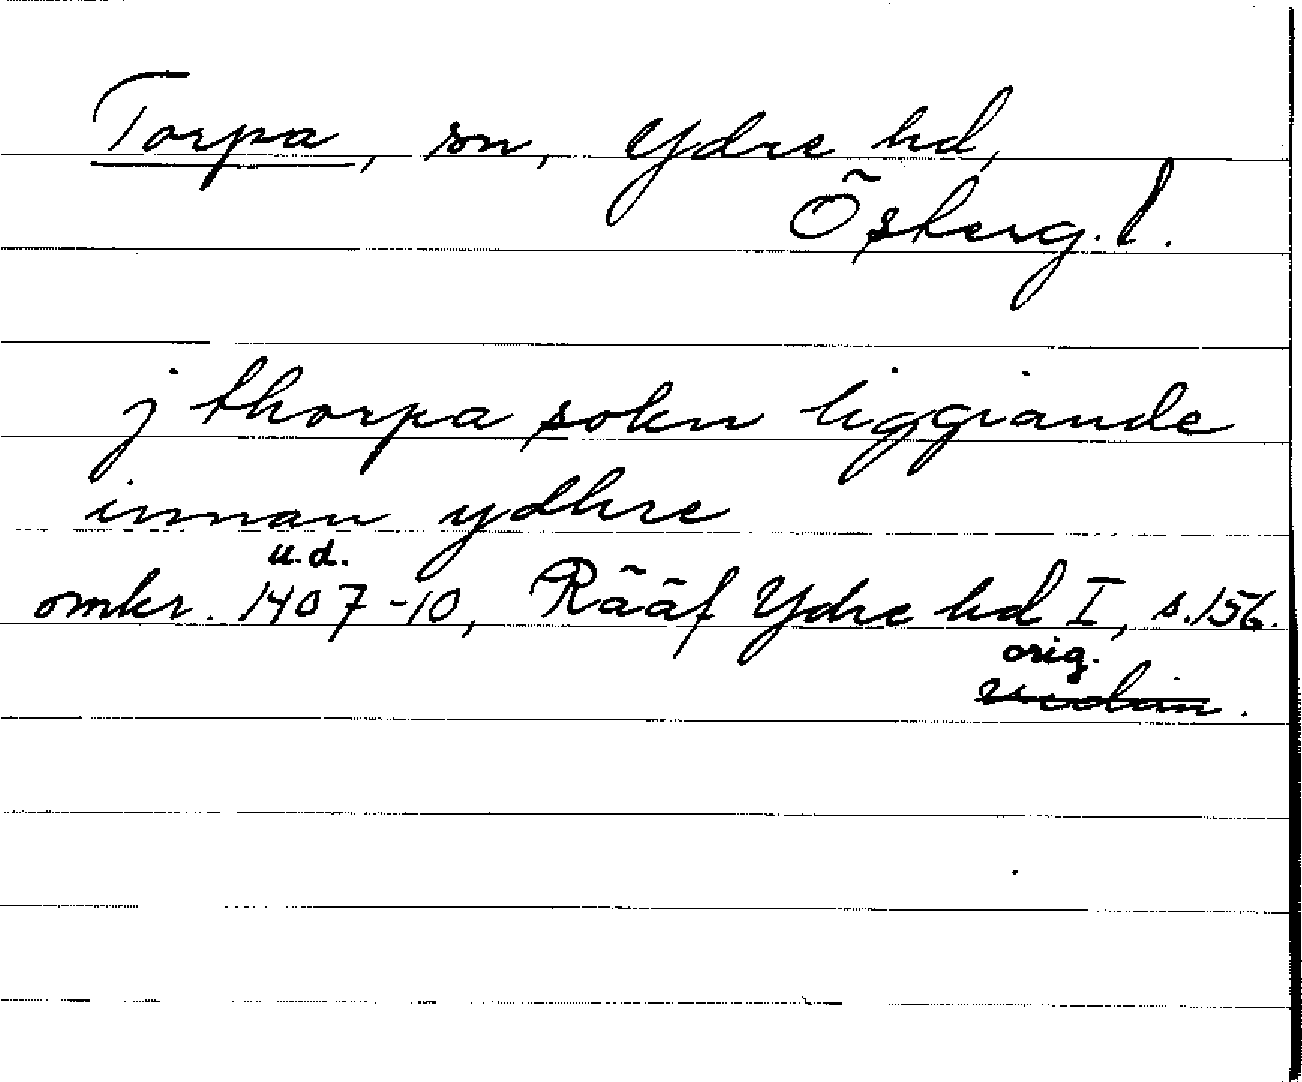 Torpa, sn, Ydre hd,
Österg. l.
j thorpa sokn liggiande
innan ydhre
u.d.
omkr. 1407-10, Rääf Ydre hd I, s. 156.
orig.